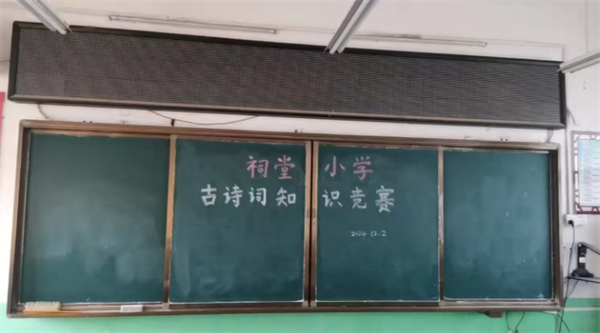 祠堂小学
古诗词知识竞赛
2024.12.2